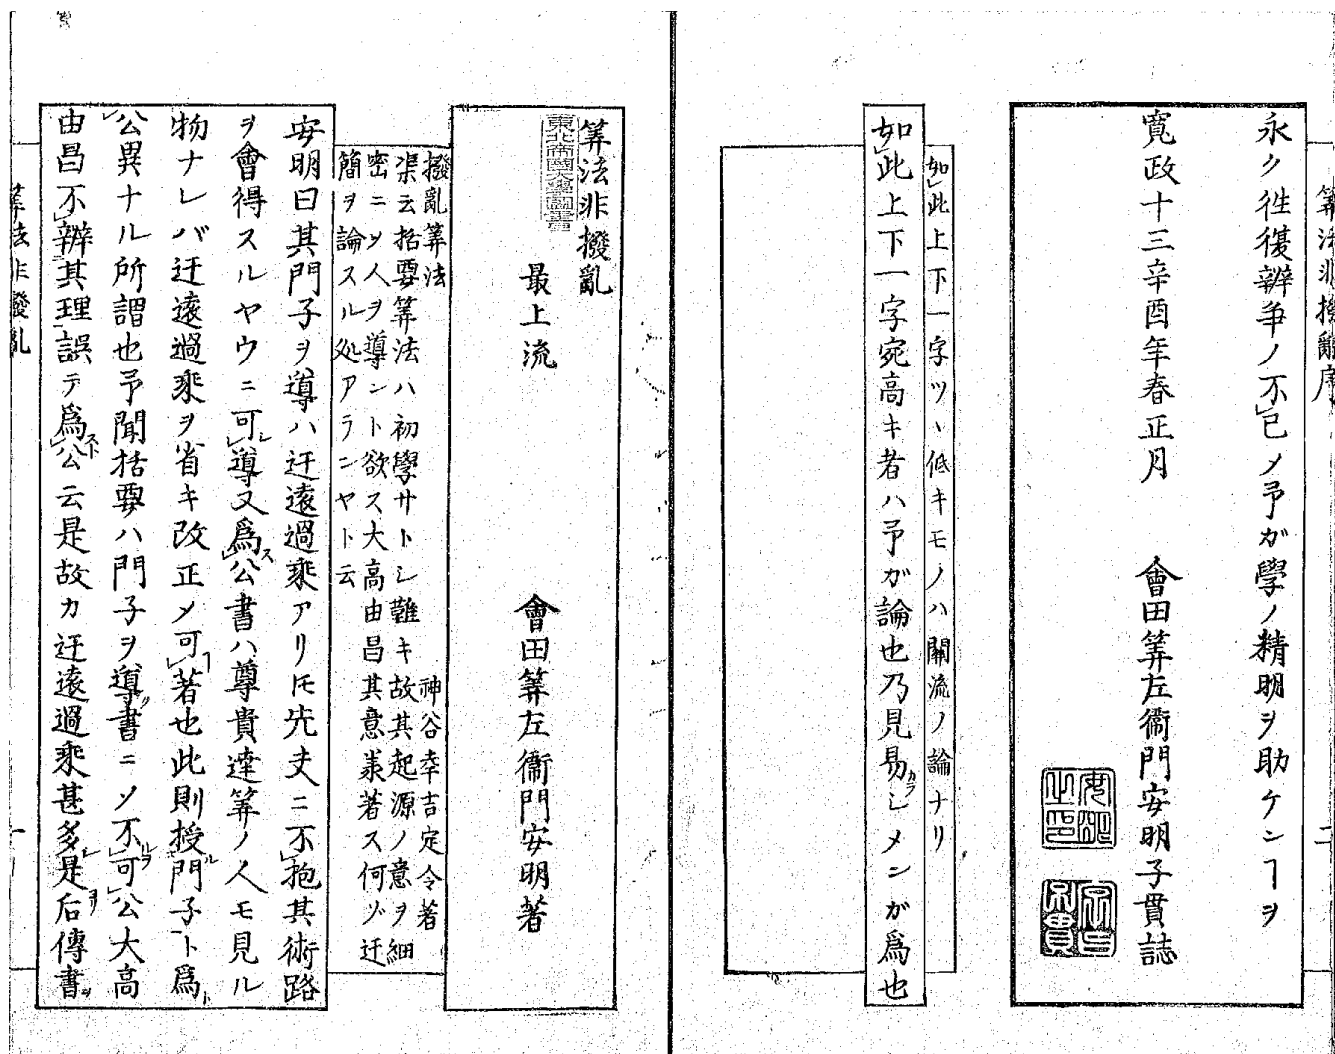 算法非撥亂序 二
永ク徃復辨爭ノ不已ノ予ガ學ノ精明ヲ助ケンヿヲ
寬政十三辛酉年春正月 會田筭左衞門安明子貫誌
如此上下一字ツヽ低キモノハ關流ノ論ナリ
如此上下一字宛高キ者ハ予ガ論也乃見易カラシメンガ爲也
筭法非撥亂
東北帝國大學圖書
最上流 會田筭左衞門安明著
撥亂筭法 神谷幸吉定令著
渠云括要筭法ハ初學サトシ難キ故其起源ノ意ヲ細
密ニシ人ヲ導ント欲ス大高由昌其意衆著ス何ゾ迂
簡ヲ論スル処アランヤト云
安明曰其門子ヲ導ハ迂遠過乘アリ𪜈先丈ニ不抱其術路
ヲ會得スルヤウニ可レ導又爲ス公書ハ尊貴達筭ノ人モ見ル
物ナレバ迂遠過乘ヲ省キ改正〆可著也此則授ル門子ト爲ト
公異ナル所謂也予聞括要ハ門子ヲ導ク書ニ〆不可公大高
由昌不辨其理誤テ爲スト公云是故カ迂遠過乘甚多シ是ヲ后傳書
筭法非撥亂 一